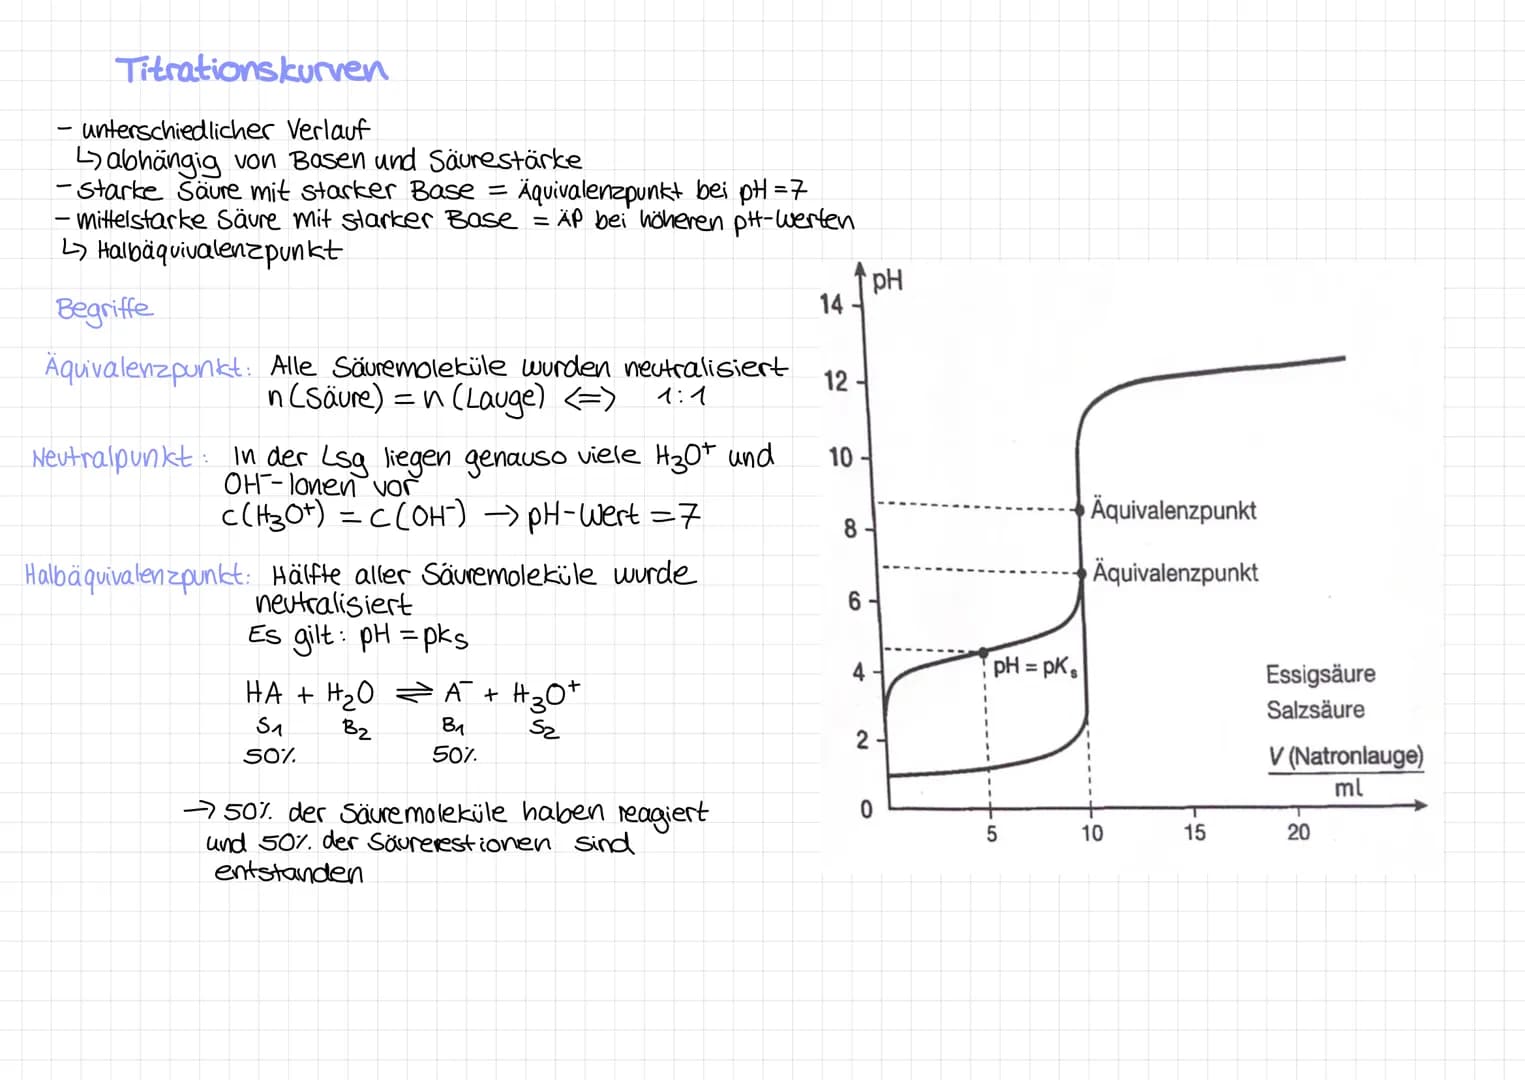 Titrationskurven
- unterschiedlicher Verlauf
↳ abhängig von Basen und Säurestärke
- starke Säure mit starker Base = Äquivalenzpunkt bei pH = 7
- mittelstarke Säure mit starker Base = ÄP bei höheren pH-Werten
↳ Halbäquivalenzpunkt
Begriffe
Äquivalenzpunkt: Alle Säuremoleküle wurden neutralisiert
n (Säure) = n (Lauge) <=> 1:1
Neutralpunkt: In der Lsg liegen genauso viele H₃O⁺ und
OH⁻-Ionen vor
c(H₃O⁺) = c(OH⁻) → pH-Wert = 7
Halbäquivalenzpunkt: Hälfte aller Säuremoleküle wurde
neutralisiert
Es gilt: pH = pks
HA + H₂O ⇌ A⁻ + H₃O⁺
S₁ B₂ B₁ S₂
50% 50%
→ 50% der Säuremoleküle haben reagiert
und 50% der Säurerestionen sind
entstanden
pH
14
12
10
8
6
4
2
0
Äquivalenzpunkt
Äquivalenzpunkt
pH = pKₛ
Essigsäure
Salzsäure
V (Natronlauge)
ml
5 10 15 20